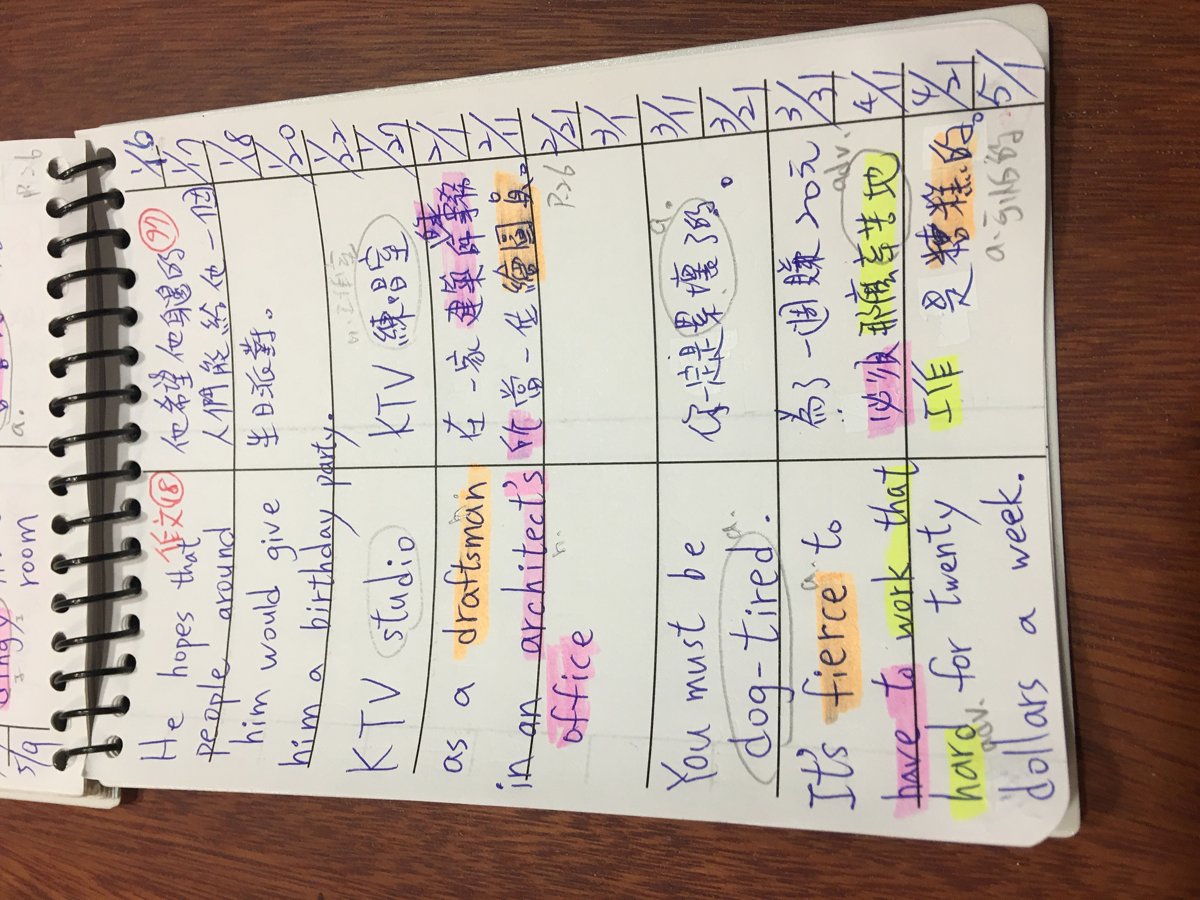 作文(18)
He hopes that
people around
him would give
him a birthday party.
KTV studio
as a draftsman
in an architect's
n.
office
You must be
dog-tired.
a.
It's fierce to
a.
have to work that
hard for twenty
adv.
dollars a week.
(97)
他希望他身邊的
人們能給他一個
生日派對。
n.工作室
KTV 練唱室
在一家建築師事務
所當一在繪圖員。
P.26
a.
你一定是累壞了的。
為了一週賺20元
adv.
必須那麼辛苦地
工作 是糟糕的。
a.強烈的
1/16
1/17
1/18
1/20
1/22
1/27
2/1
2/11
2/21
3/1
3/11
3/21
3/31
4/1
4/21
5/1
P.26
a.
dingy
room
5/9